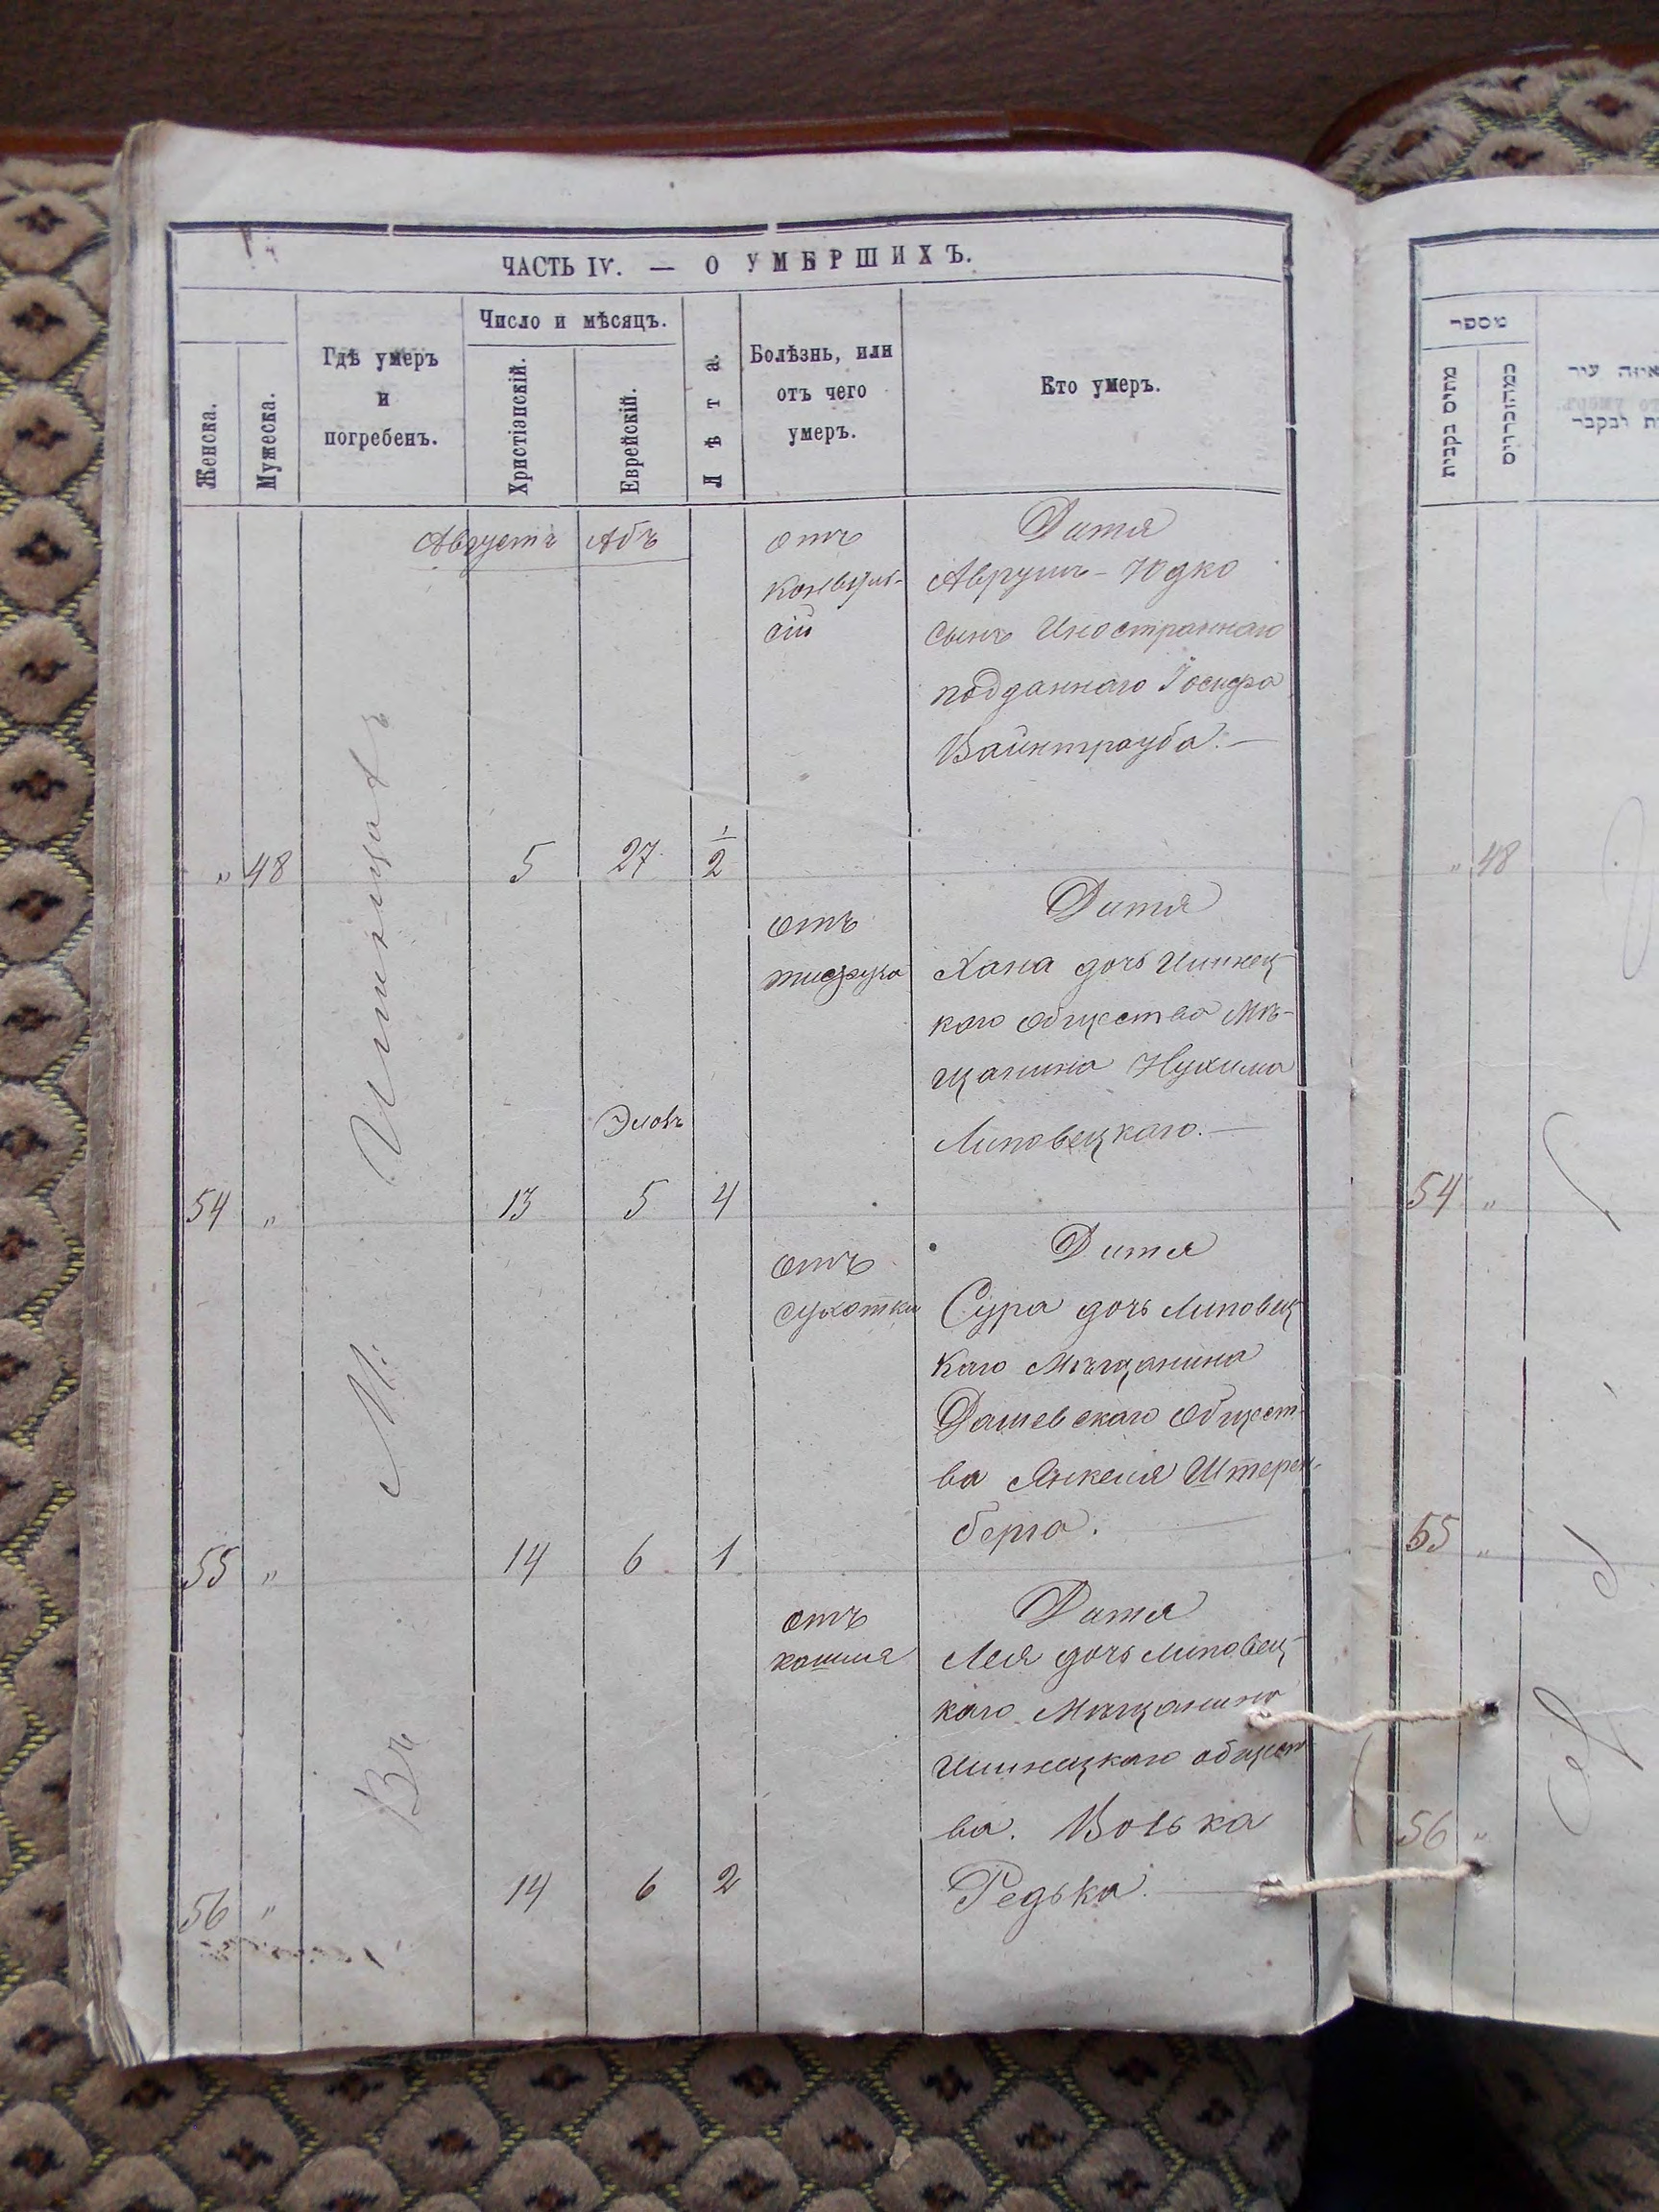 ЧАСТЬ IV. — О УМЕРШИХЪ.
Женска.
Мужеска.
Гдѣ умеръ
и
погребенъ.
Число и мѣсяцъ.
Христіанскій.
Еврейскій.
Лѣта.
Болѣзнь, или
отъ чего
умеръ.
Кто умеръ.
Августъ Абъ
отъ
конвуль-
сій
Дитя
Аврумъ-Юдко
сынъ Иностраннаго
подданнаго Іосифа
Вайнтрауба. —
„ 48 5 27 1/2
отъ
тифуса
Дитя
Хана дочь Ильинец-
каго общества Мѣ-
щанина Нухима
Липовецкаго. —
Эловъ
54 „ 13 5 4
отъ
сухотки
Дитя
Сура дочь Липовец-
каго Мѣщанина
Дашевскаго Общест-
ва Янкеля Штерен-
берга. —
55 „ 14 6 1
отъ
кашля
Дитя
Лея дочь Липовец-
каго Мѣщанина
Ильинецкаго общест-
ва. Волька
Редька. —
56 „ 14 6 2
Въ М. Ильинцахъ
מספר
„ 48
54 „
55 „
56 „